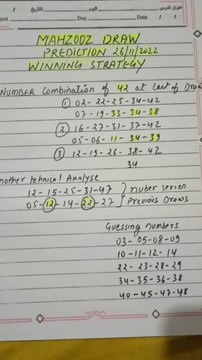 Subject
Day
Date
MAHZOOZ DRAW
PREDICTION 26/11/2022
WINNING STRATEGY
NUMBER Combination of 42 at Last of Draw
① 02-22-25-34-42
07-19-33-34-38
② 16-27-31-37-42
05-06-11-34-39
③ 12-19-26-38-42
34
nother tehnical Analyse
12-15-25-31-47 } nuber series
05-12-14-22-27 } Previous Draws
Guessing numbers
03-05-08-09
10-11-12-14
22-23-28-29
34-35-36-38
40-45-47-48